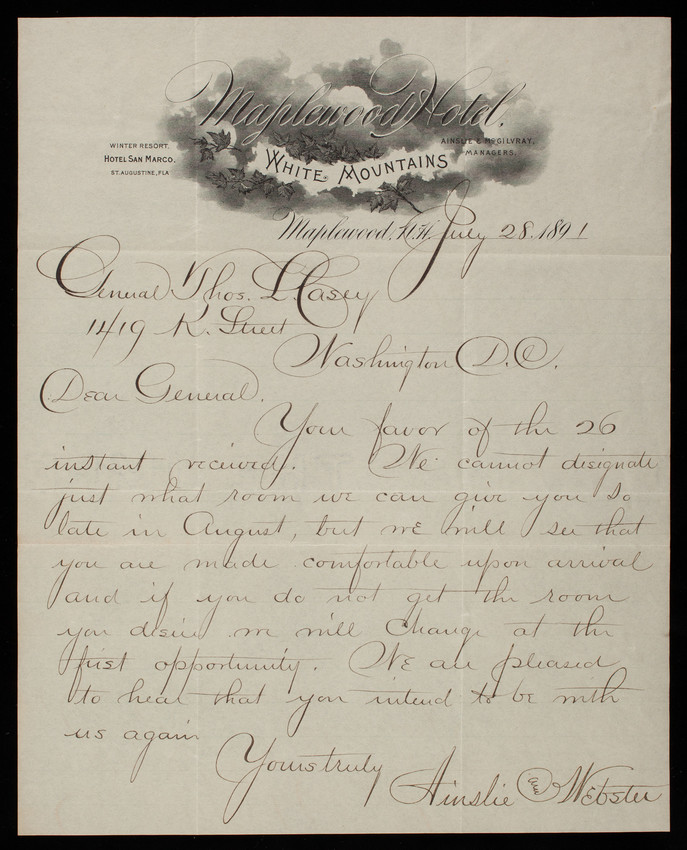 Maplewood Hotel.
WINTER RESORT.
HOTEL SAN MARCO.
ST. AUGUSTINE, FLA
AINSLIE & McGILVRAY,
MANAGERS.
WHITE MOUNTAINS
Maplewood, N.H. July 28 1891
General Thos. L. Casey
1419 K. Street
Washington D.C.
Dear General.
Your favor of the 26
instant received. We cannot designate
just what room we can give you so
late in August, but we will see that
you are made comfortable upon arrival
and if you do not get the room
you desire we will change at the
first opportunity. We are pleased
to hear that you intend to be with
us again
Yours truly
Ainslie & Webster